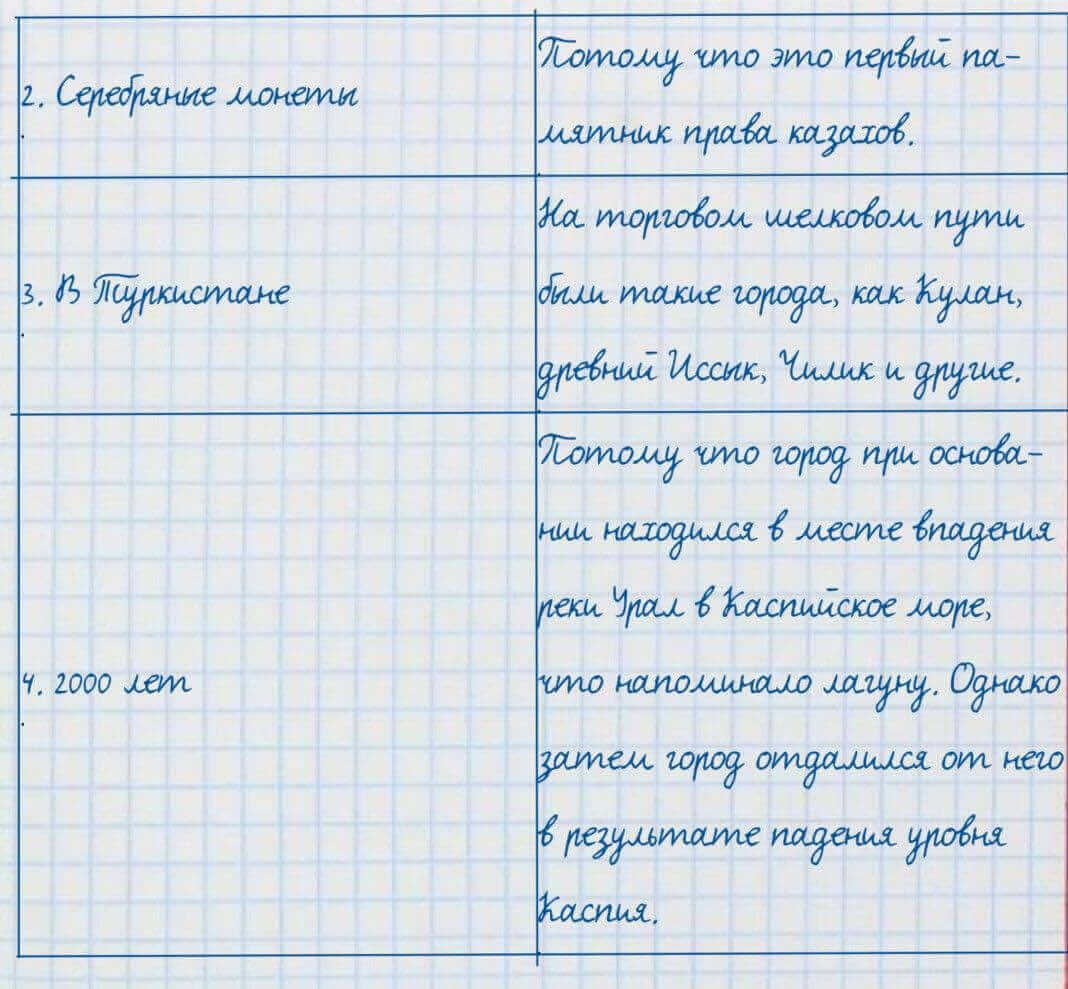 2. Серебряные монеты
Потому что это первый па-
мятник права казахов.
3. В Туркистане
На торговом шелковом пути
были такие города, как Кулан,
древний Иссык, Чилик и другие.
4. 2000 лет
Потому что город при основа-
нии находился в месте впадения
реки Урал в Каспийское море,
что напоминало лагуну. Однако
затем город отдалился от него
в результате падения уровня
Каспия.